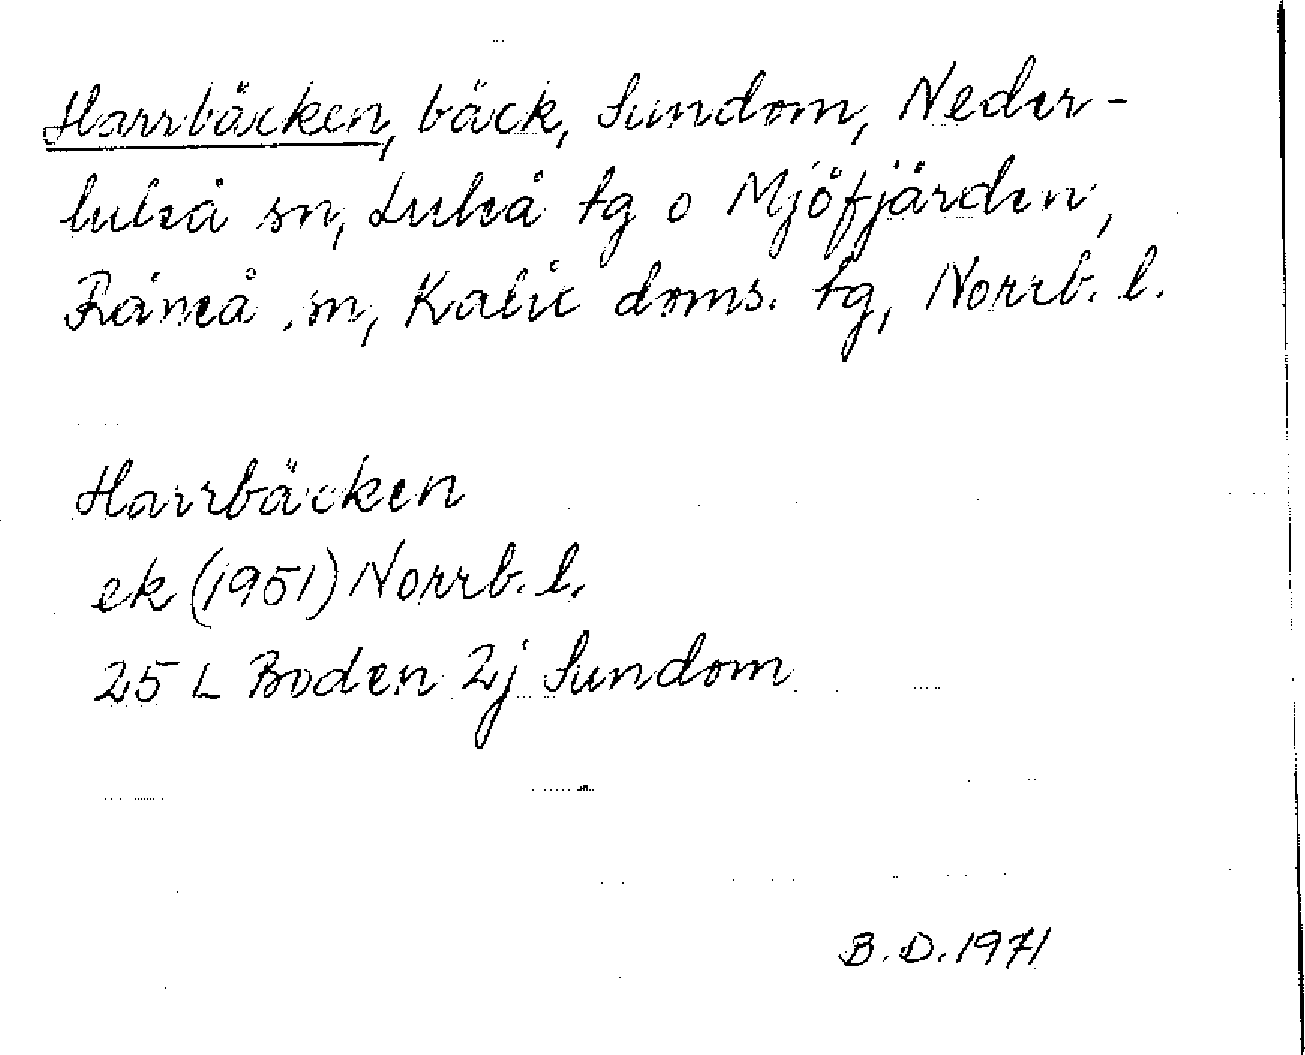 Harrbäcken, bäck, Sundom, Neder-
luleå sn, Luleå tg o Mjöfjärden,
Råneå sn, Kalix doms. tg, Norrb. l.
Harrbäcken
ek (1951) Norrb. l.
25 L Boden 2j Sundom
B.D. 1971